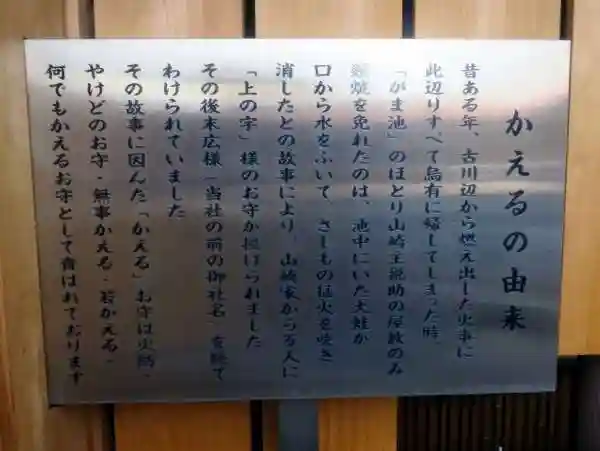 かえるの由来
昔ある年、古川辺から燃え出した火事に
此辺りすべて烏有に帰してしまった時
「がま池」のほとり山崎主税助の屋敷のみ
類焼を免れたのは、池中にいた大蛙が
口から水をふいて、さしもの猛火を吹き
消したとの故事により、山崎家から万人に
「上の字」様のお守が授けられました
その後末広様-当社の前の御社名-を経て
わけられていました
その故事に因んだ「かえる」お守は火防・
やけどのお守・無事かえる・若かえる・
何でもかえるお守として貴ばれております